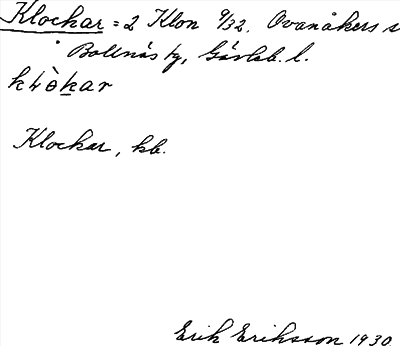 Klockar = 2 Klon 9/32. Ovanåkers s
Bollnäs tg, Gävleb. l.
k4òkar
Klockar, kb.
Erik Eriksson 1930